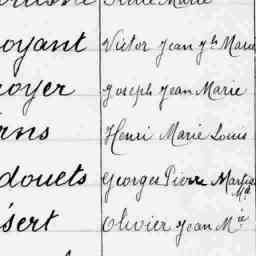 oyant Victor Jean Jh Marie
oyer Joseph Jean Marie
rns Henri Marie Louis
douets Georges Pierre Martial Mie
ésert Olivier Jean Mie